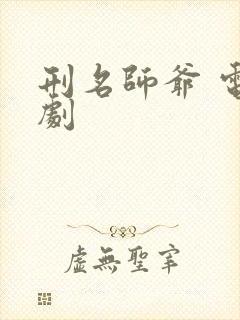 刑名師爺 電
劇
虛無聖宰